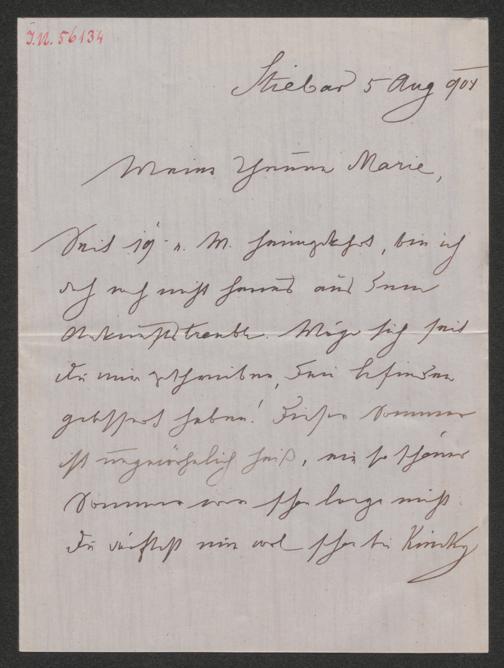 J.N. 56134
Stiebar 5 Aug 904
Meine theure Marie,
Seit 19 v. M. heimgekehrt, bin ich
doch noch nicht heraus aus dem
Ankunftstrouble. Möge sich seit
Du mir geschrieben, Dein Befinden
gebessert haben! Dieser Sommer
ist ungewöhnlich heiß, ein so schöner
Sommer war schon lange nicht.
Du dürftest nun wol schon bei Kinsky